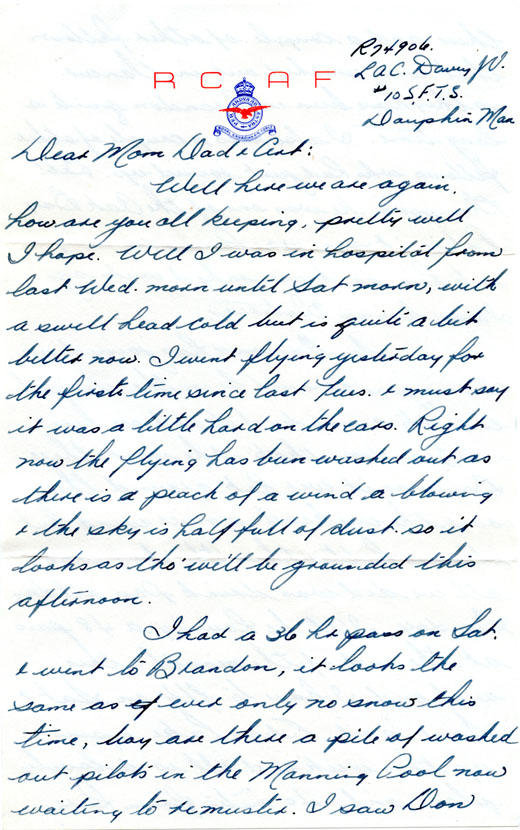 R74906.
LAC. Davis J V.
#10 S.F.T.S.
Dauphin Man
R C A F
Dear Mom Dad & Art:
Well here we are again,
how are you all keeping, pretty well
I hope. Well I was in hospital from
last Wed. morn until Sat morn, with
a swell head cold but is quite a bit
better now. I went flying yesterday for
the first time since last Tues. & must say
it was a little hard on the ears. Right
now the flying has been washed out as
there is a peach of a wind a blowing
& the sky is half full of dust. so it
looks as tho we'll be grounded this
afternoon.
I had a 36 hr pass on Sat.
& went to Brandon, it looks the
same as ever only no snow this
time, boy are there a pile of washed
out pilots in the Manning Pool now
waiting to remuster. I saw Don